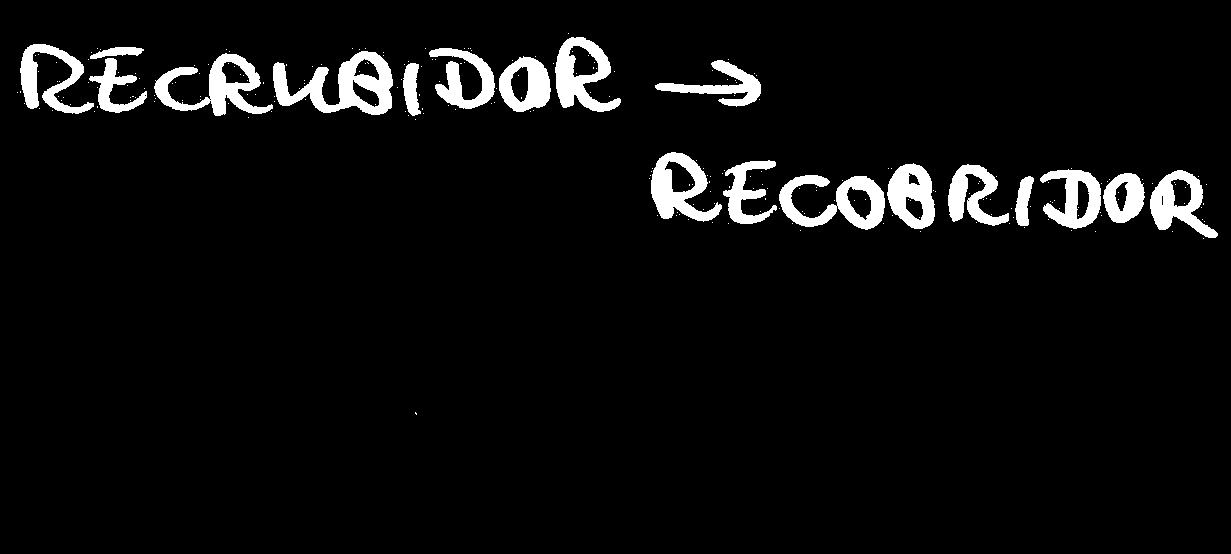 RECRUBIDOR →
RECOBRIDOR